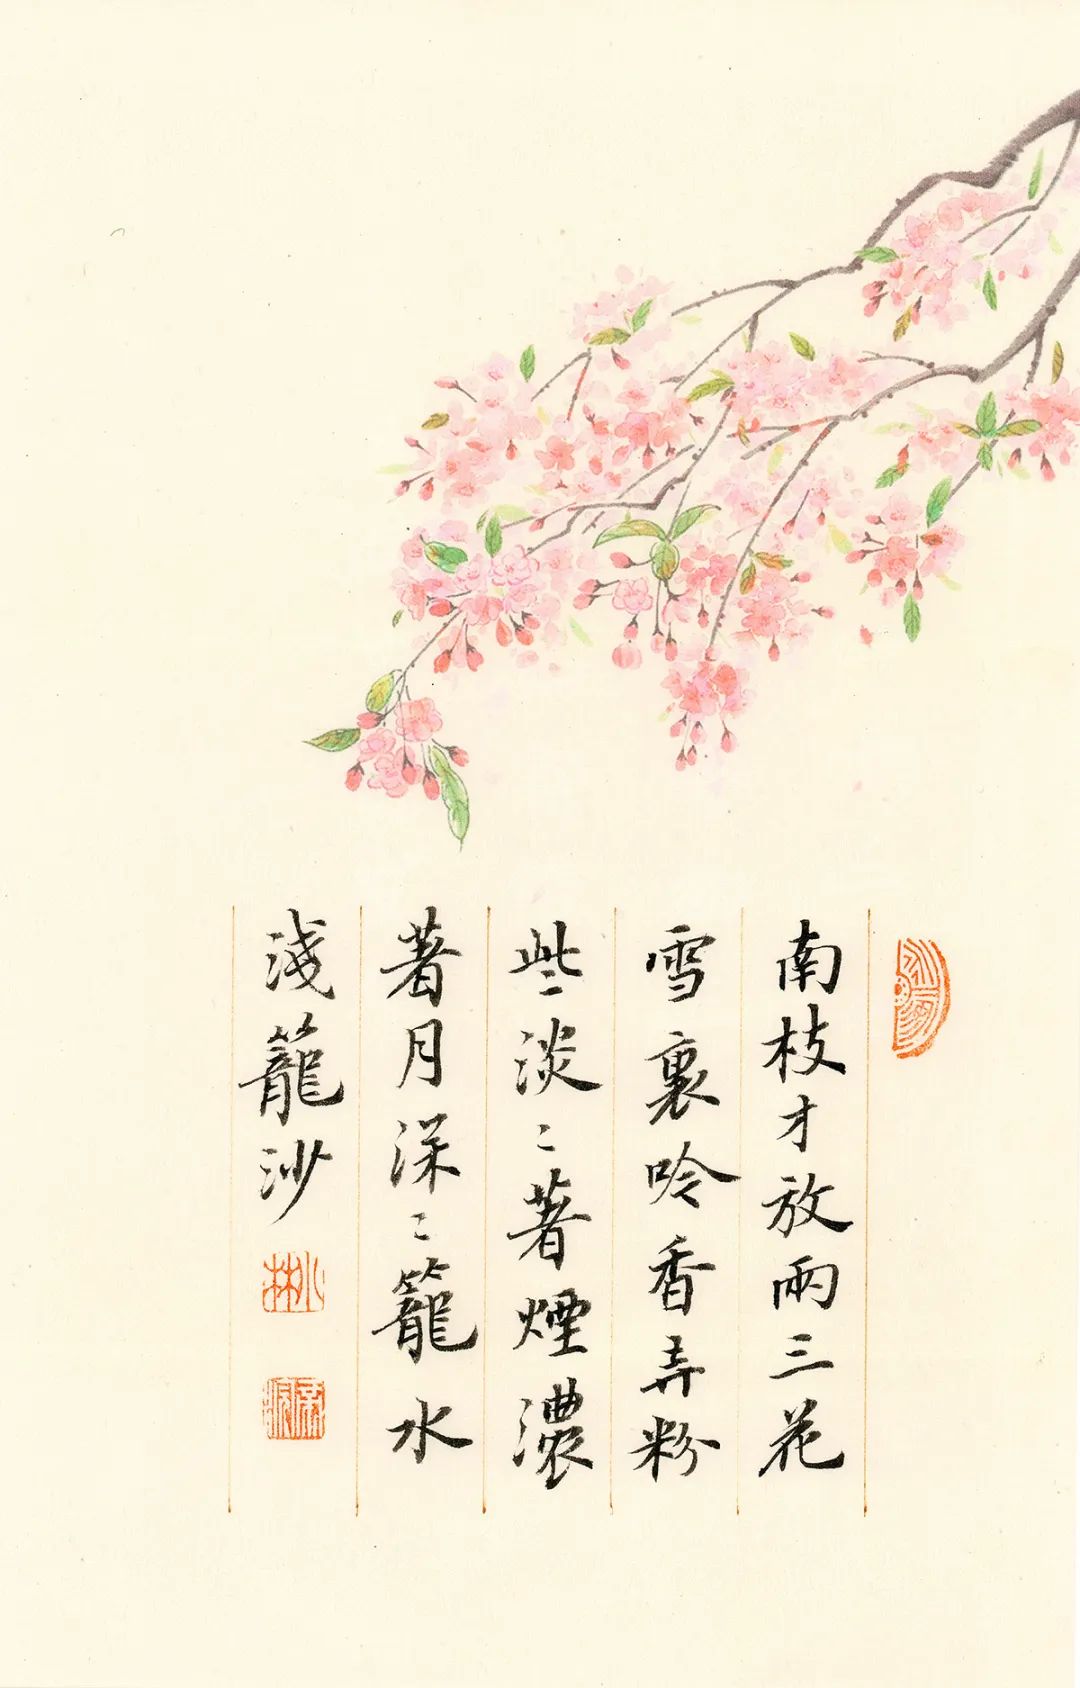 南枝才放兩三花
雪裏吟香弄粉
些淡〻著煙濃
著月深〻籠水
淺籠沙
小林